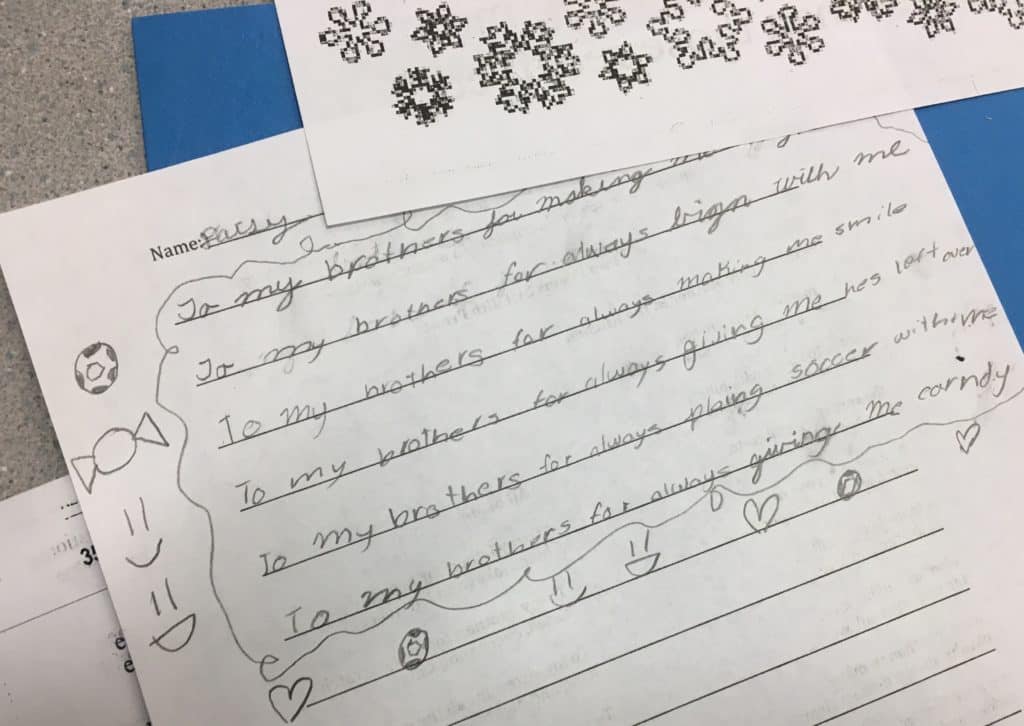 Name: Patsy
To my brothers for making me
To my brothers for always brign with me
To my brothers for always making me smile
To my brothers for always giving me hes left over
To my brothers for always plaing soccer with me
To my brothers for always giving me carndy
3
e
e